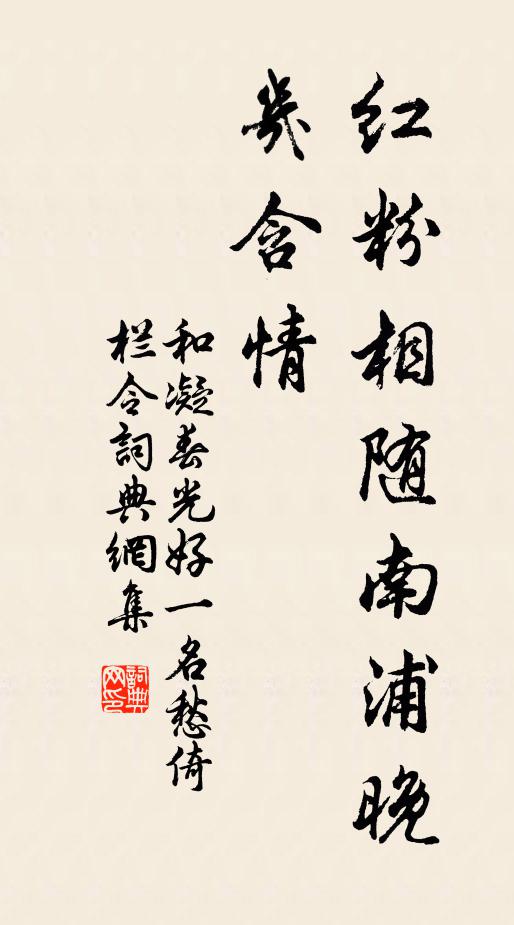 红粉相随南浦晚
几含情
和凝春光好一名愁倚
栏令詞典網集
詞典
网印